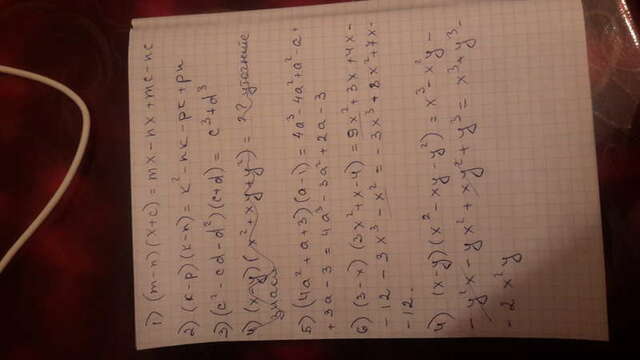 1) (m-n)(x+c) = mx - nx + mc - nc
2) (k-p)(k-n) = k² - nk - pk + pn
3) (c² - cd - d²)(c+d) = c³ + d³
4) (x-y)(x² + xy + y²) = ?? уточните
знаки
5) (4a² + a + 3)(a-1) = 4a³ - 4a² + a² - a +
+ 3a - 3 = 4a³ - 3a² + 2a - 3
6) (3-x)(3x² + x - 4) = 9x² + 3x + 4x -
- 12 - 3x³ - x² = - 3x³ + 8x² + 7x -
- 12.
4) (x-y)(x² - xy - y²) = x³ - x²y -
- y²x - yx² + xy² + y³ = x³ + y³ -
- 2x²y